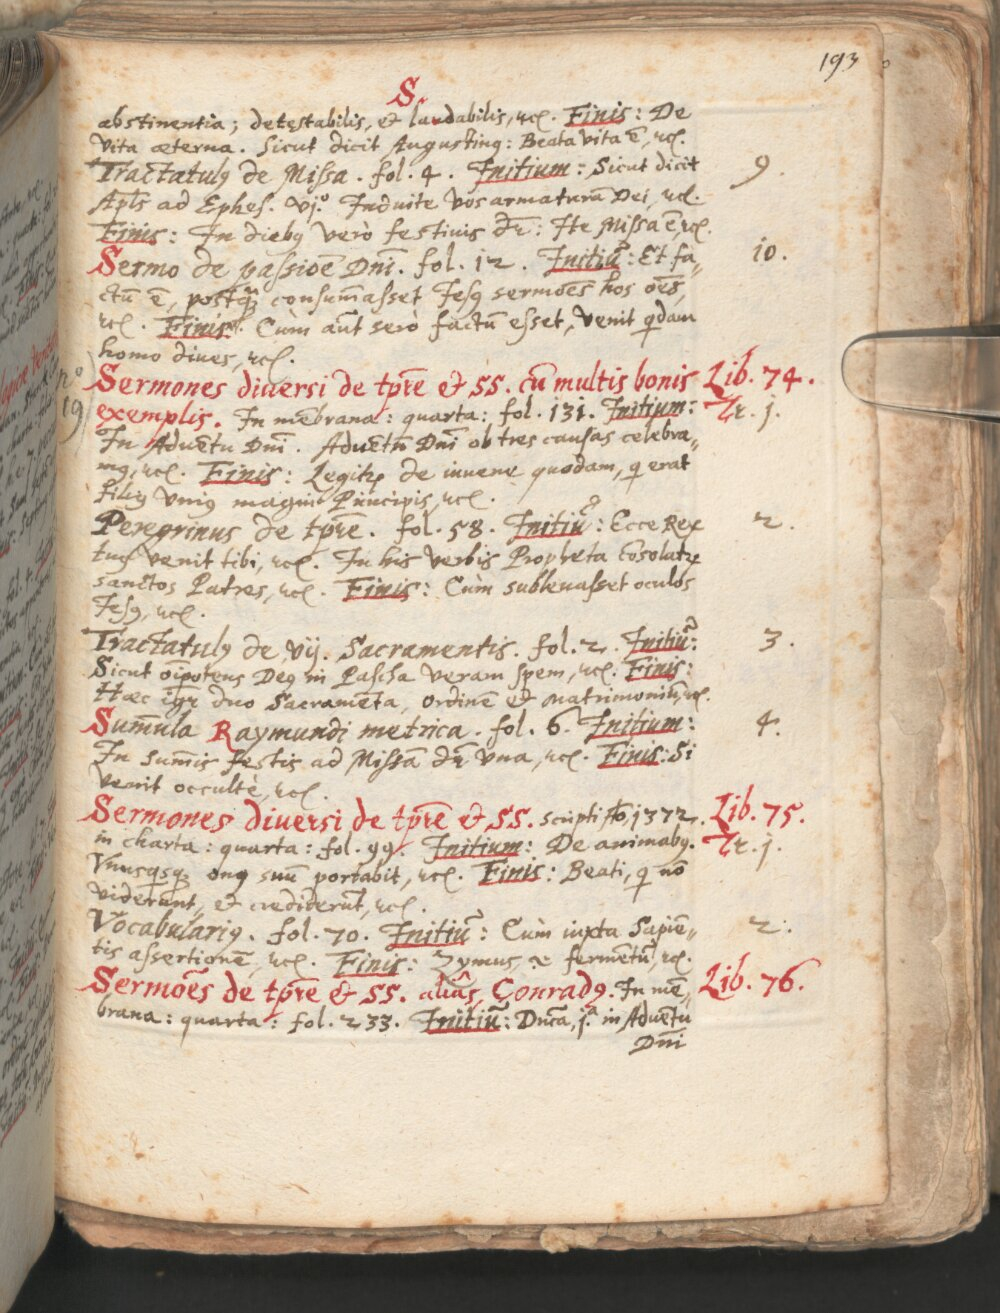 193
S.
abstinentia; detestabilis, et laudabilis, &c. Finis: De
vita æterna. Sicut dicit Augustinꝰ: Beata vita ē, &c.
Tractatulꝰ de Missa. fol. 4. Initium: Sicut dicit 9.
Apl̄s ad Ephes. vj.º Induite vos armaturā Dei, &c.
Finis: In diebꝰ verò festiuis dr̄: Ite Missa ē &c.
Sermo de passiōe Dn̄i. fol. 12. Initiū: Et fa„ 10.
ctū ē, postq̄ȝ consum̄asset Jesꝰ sermōēs hos oēs,
&c. Finis: Cùm aūt serò factū esset, venit q̄dam
homo diues, &c.
Sermones diuersi de tp̄re & SS. cū multis bonis Lib. 74.
exemplis. In mēbrana: quarta: fol. 131. Initium: Tr. j.
nº
19
In Aduētu Dn̄i. Aduentū Dn̄i ob tres causas celebra„
mꝰ, &c. Finis: Legitꝛ de iuuene quodam, q̄ erat
filiꝰ vniꝰ magni Principis, &c.
Peregrinus de tp̄re. fol. 58. Initiū: Ecce Rex 2.
tuꝰ venit tibi, &c. In his verbis Propheta cōsolatꝛ
sanctos Patres, &c. Finis: Cùm subleuasset oculos
Jesꝰ, &c.
Tractatulꝰ de vij. Sacramentis. fol. 2. Initiū: 3.
Sicut oīpotens Deꝰ in Pascha veram spem, &c. Finis:
Hæc igr̄ duo Sacramēta, ordinē et matrimoniū, &c.
Sum̄ula Raymundi metrica. fol. 6. Initium: 4.
In sum̄is festis ad Missā dr̄ vna, &c. Finis: Si
venit occultè, &c.
Sermones diuersi de tp̄re & SS. scripti 1372. Lib. 75.
in charta: quarta: fol. 99. Initium: De animabꝰ. Tr. j.
Vnusqsqȝ onꝰ suū portabit, &c. Finis: Beati, q̄ nō
viderunt, et crediderūt, &c.
Vocabulariꝰ. fol. 70. Initiū: Cùm iuxta Sapiē„ 2.
tis assertionē, &c. Finis: Zymus, fermētū, &c.
Sermōēs de tp̄re & SS. aliàs, Conradꝰ. In mē„ Lib. 76.
brana: quarta: fol. 233. Initiū: Dn̄ca, j.ª in Aduētu
Dn̄i